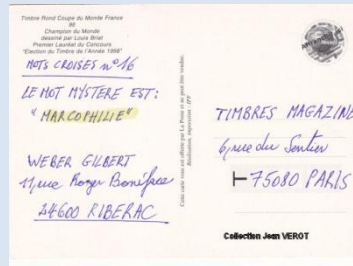 Timbre Rond Coupe du Monde France
98
Champion du Monde
dessiné par Louis Briat
Premier Lauréat du Concours
"Election du Timbre de l'Année 1998"
MOTS CROISES n° 16
LE MOT MYSTERE EST:
"MARCOPHILIE"
WEBER GILBERT
11, rue Roger Boniface
24600 RIBERAC
Cette carte vous est offerte par La Poste et ne peut être vendue.
TIMBRES MAGAZINE
6, rue du Sentier
75080 PARIS
Collection Jean VEROT